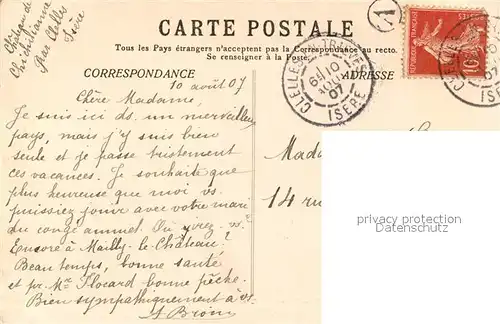 Château de
Chichilianne
Par Clelles
Isère
CARTE POSTALE
Tous les Pays étrangers n'acceptent pas la Correspondance au recto.
Se renseigner à la Poste.
CORRESPONDANCE
ADRESSE
CLELLES
10
07
ISÈRE
RÉPUBLIQUE FRANÇAISE
POSTES
10
10 août 07
Chère Madame,
Je suis ici ds. un merveilleux
pays, mais j'y suis bien
seule et je passe tristement
ces vacances. Je souhaite que
plus heureuse que moi vs.
puissiez jouir avec votre mari
du congé annuel. Où irez-vs.
Encore à Mailly-le-Château?
Beau temps, bonne santé
et pr. Mr. Flocard bonne pêche.
Bien sympathiquement à vs.
Mada
14 ru
privacy protection
Datenschutz